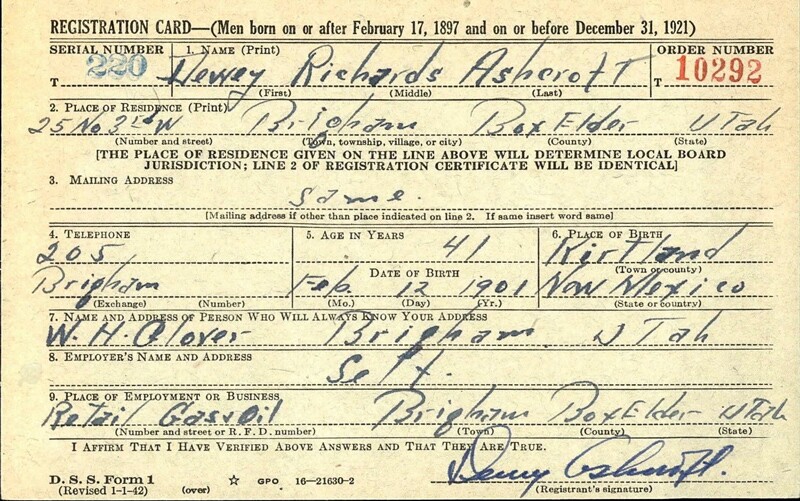 REGISTRATION CARD—(Men born on or after February 17, 1897 and on or before December 31, 1921)
SERIAL NUMBER 1. NAME (Print) ORDER NUMBER
T 220 Dewey Richards Ashcroft T 10292
(First) (Middle) (Last)
2. PLACE OF RESIDENCE (Print)
25 No 3rd W Brigham Box Elder Utah
(Number and street) (Town, township, village, or city) (County) (State)
[THE PLACE OF RESIDENCE GIVEN ON THE LINE ABOVE WILL DETERMINE LOCAL BOARD
JURISDICTION; LINE 2 OF REGISTRATION CERTIFICATE WILL BE IDENTICAL]
3. MAILING ADDRESS
Same.
[Mailing address if other than place indicated on line 2. If same insert word same]
4. TELEPHONE 5. AGE IN YEARS 6. PLACE OF BIRTH
205 41 Kirtland
DATE OF BIRTH (Town or county)
Brigham Feb. 12 1901 New Mexico
(Exchange) (Number) (Mo.) (Day) (Yr.) (State or country)
7. NAME AND ADDRESS OF PERSON WHO WILL ALWAYS KNOW YOUR ADDRESS
W. H. Glover Brigham Utah
8. EMPLOYER'S NAME AND ADDRESS
Self.
9. PLACE OF EMPLOYMENT OR BUSINESS
Retail Gas & Oil Brigham Box Elder Utah
(Number and street or R. F. D. number) (Town) (County) (State)
I AFFIRM THAT I HAVE VERIFIED ABOVE ANSWERS AND THAT THEY ARE TRUE.
Dewey Ashcroft.
D. S. S. Form 1
(Revised 1-1-42) (over) ☆ GPO 16—21630-2 (Registrant's signature)